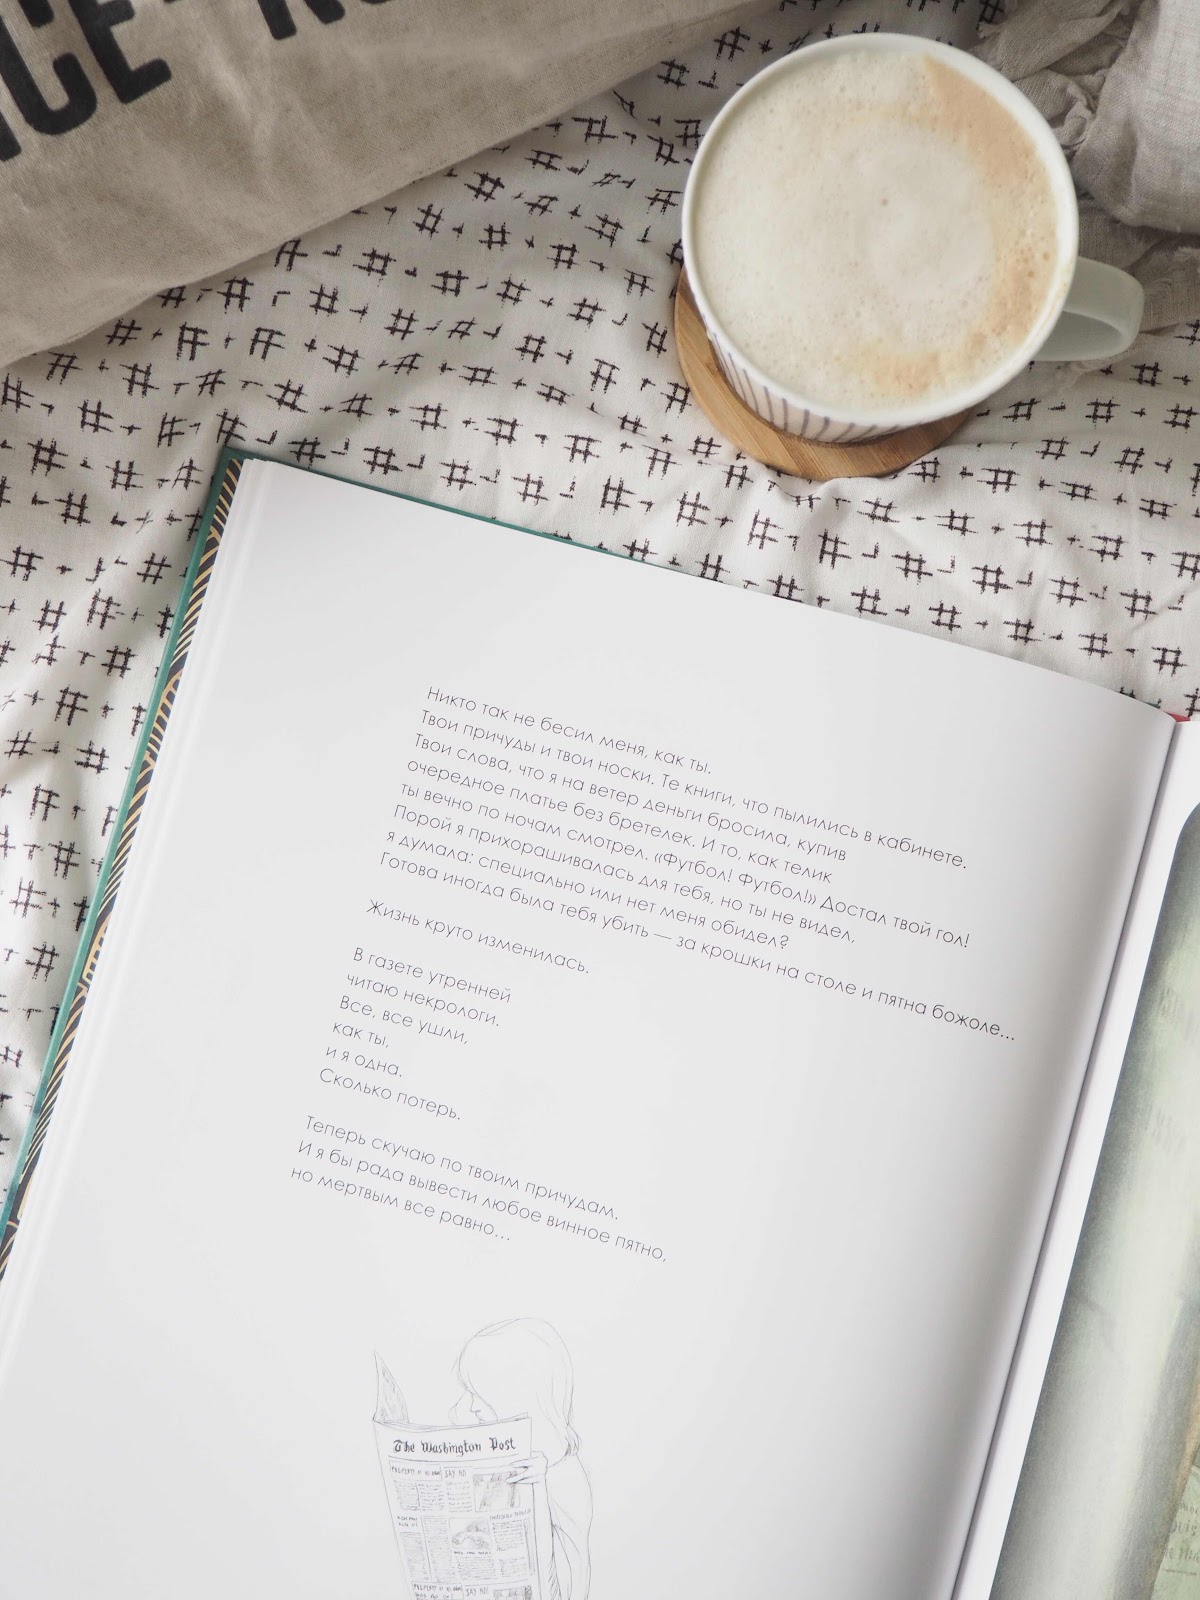 Никто так не бесил меня, как ты.
Твои причуды и твои носки. Те книги, что пылились в кабинете.
Твои слова, что я на ветер деньги бросила, купив
очередное платье без бретелек. И то, как телик
ты вечно по ночам смотрел. «Футбол! Футбол!» Достал твой гол!
Порой я прихорашивалась для тебя, но ты не видел,
я думала: специально или нет меня обидел?
Готова иногда была тебя убить — за крошки на столе и пятна божоле...
Жизнь круто изменилась.
В газете утренней
читаю некрологи.
Все, все ушли,
как ты,
и я одна.
Сколько потерь.
Теперь скучаю по твоим причудам.
И я бы рада вывести любое винное пятно,
но мертвым все равно...
The Washington Post
SAY NO
SAY NO